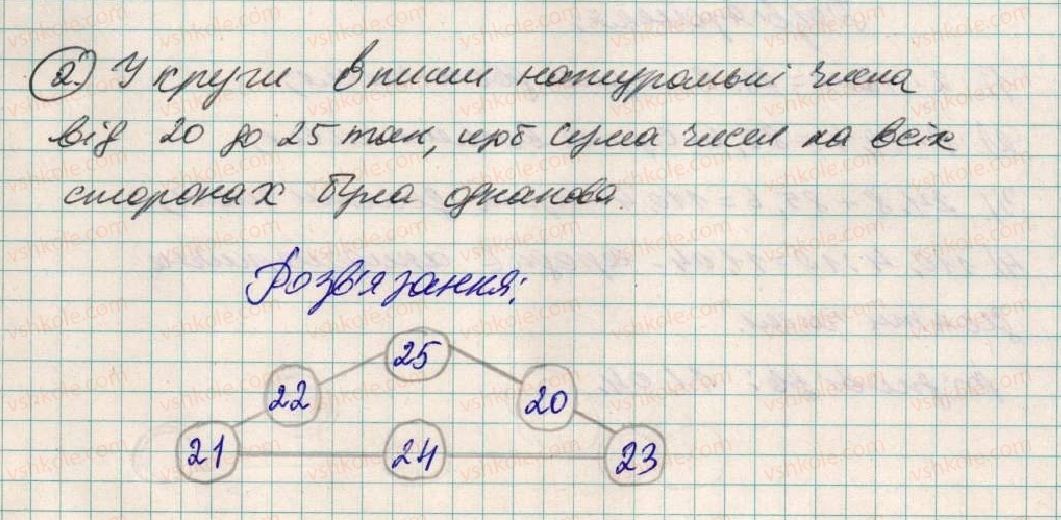 2. У круги впиши натуральні числа
від 20 до 25 так, щоб сума чисел на всіх
сторонах була однакова.
Розв'язання:
25
22 20
21 24 23
vshkole.com